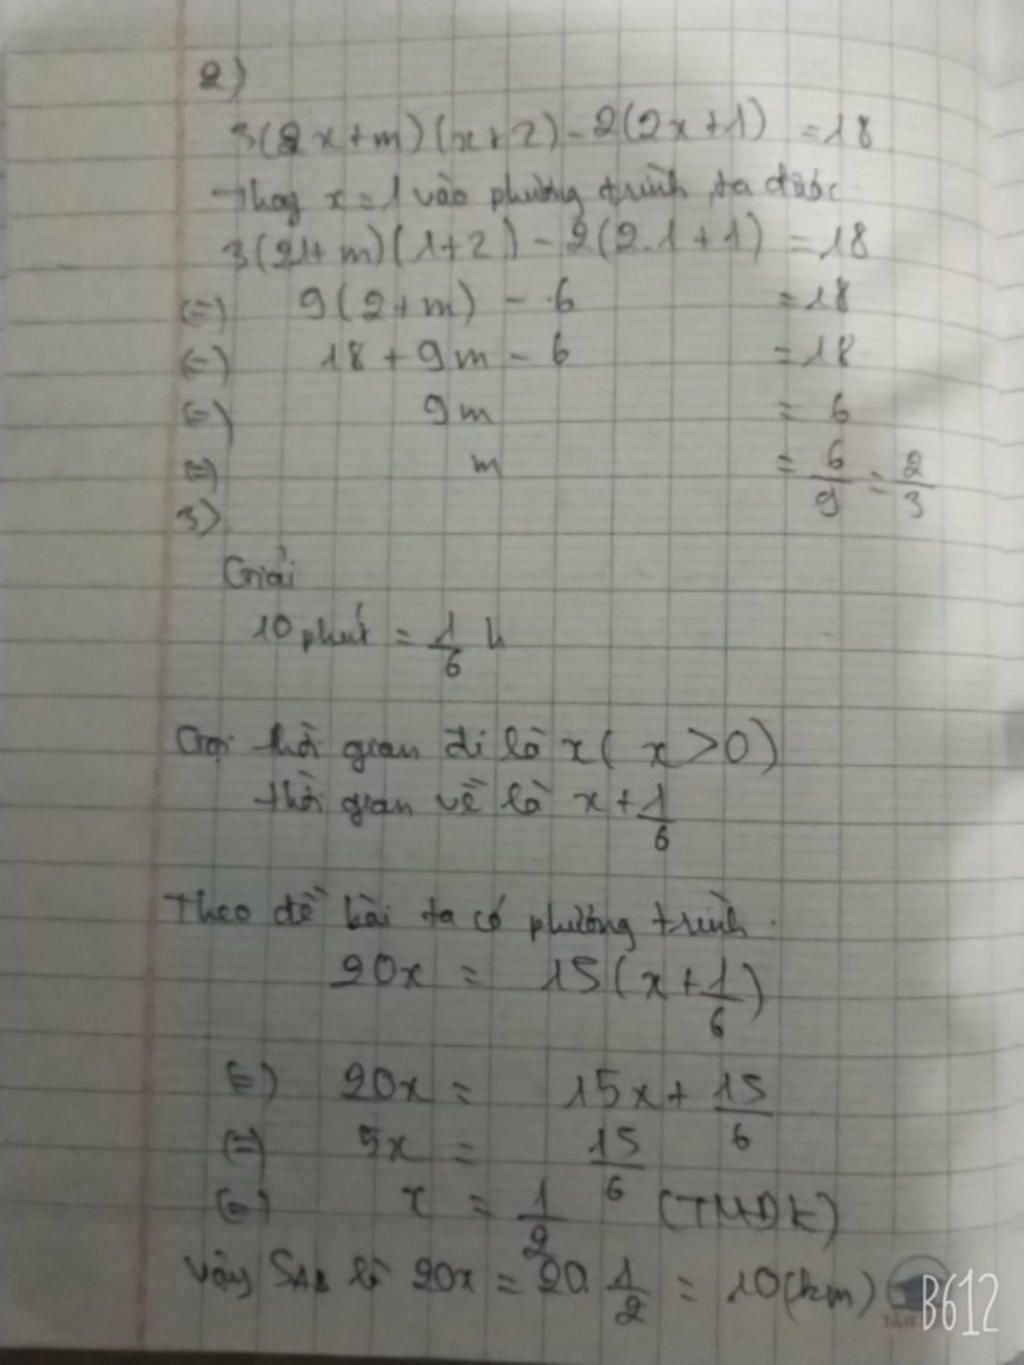 2)
3(2x+m)(x+2)-2(2x+1) =18
Thay x=1 vào phương trình, ta được
3(2.1+m)(1+2)-2(2.1+1) =18
(=) 9(2+m) - 6 =18
(=) 18+9m-6 =18
(=) 9m = 6
(=) m = 6/9 = 2/3
3)
Giải
10 phút = 1/6 h
Gọi thời gian đi là x( x>0)
thời gian về là x+1/6
Theo đề bài ta có phương trình.
20x = 15(x+1/6)
(=) 20x = 15x+15/6
(=) 5x = 15/6
(=) x = 1/2 (TMĐK)
Vậy SAB là 20x = 20.1/2 = 10(km)
B612